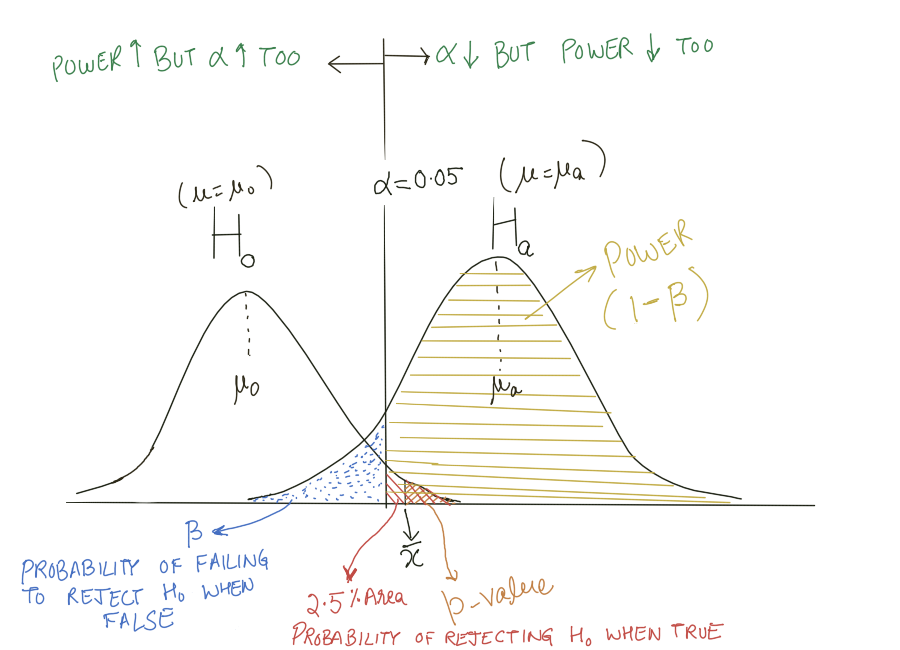 POWER ↑ BUT α ↑ TOO
α ↓ BUT POWER ↓ TOO
(μ=μ₀)
H₀
α=0.05
(μ=μₐ)
Hₐ
POWER
(1-β)
μ₀
μₐ
β
PROBABILITY OF FAILING
TO REJECT H₀ WHEN
FALSE
x̄
2.5% Area
p-value
PROBABILITY OF REJECTING H₀ WHEN TRUE